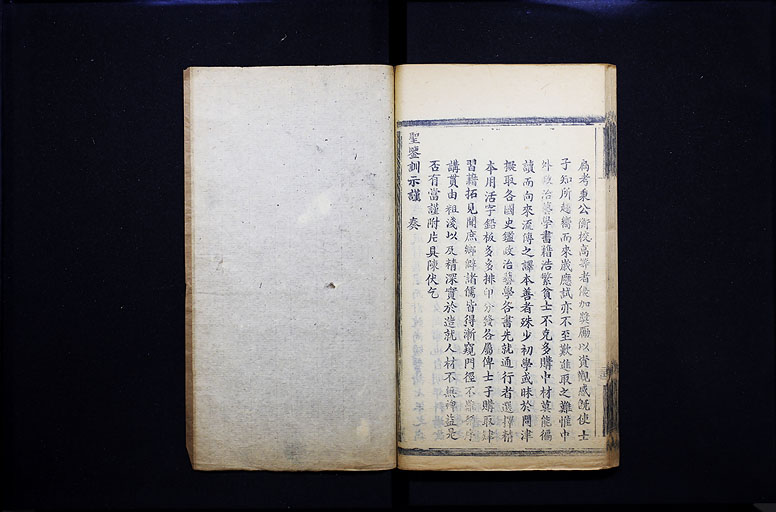 為考秉公衡校高等者優加獎勵以資觀感旣使士
子知所趨嚮而來歲應試亦不至歎進取之難惟中
外政治藝學書籍浩繁貧士不克多購中材莫能徧
讀而向來流傳之譯本善者殊少初學或昧於問津
擬取各國史鑑政治藝學各書先就通行者選擇精
本用活字鉛板多多排印分發各屬俾士子購取肄
習藉拓見聞庶鄉僻諸儒皆得漸窺門徑不難循序
講貫由粗淺以及精深實於造就人材不無裨益是
否有當謹附片具陳伏乞
聖鑒訓示謹 奏